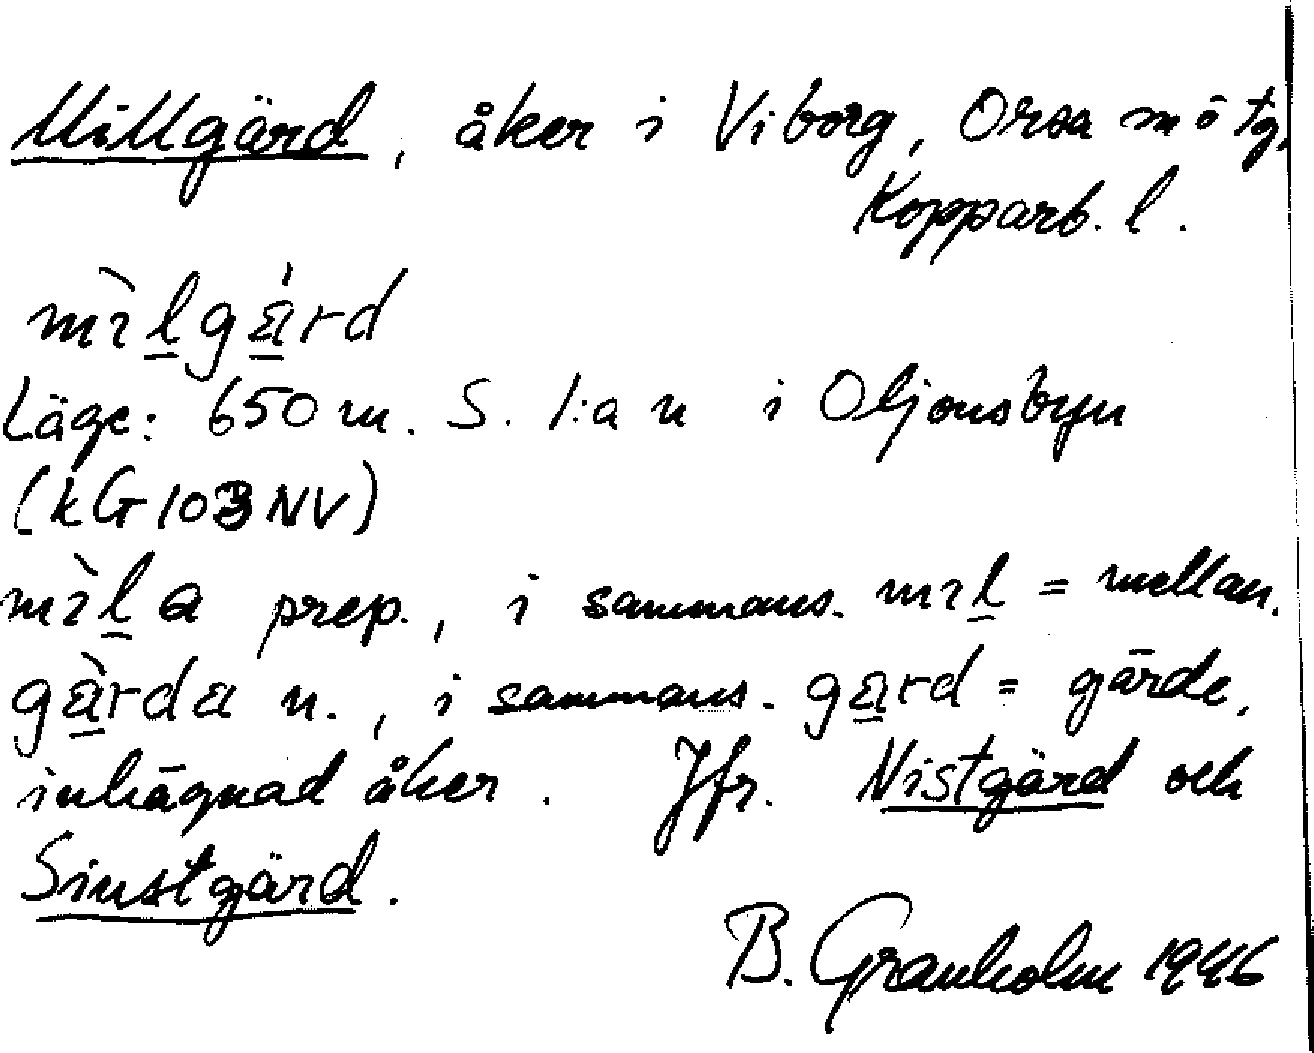 Millgärd, åker i Viborg, Orsa mötg,
Kopparb. l.
mı̀lgä́rd
Läge: 650 m. S. l:a n i Oljonsbyn
(kG 103 NV)
mı̀la prep., i sammans. mıl = mellan.
gä̀rda n., i sammans. gärd = gärde,
inhägnad åker. Jfr. Nistgärd och
Sinstgärd.
B. Granholm 1946